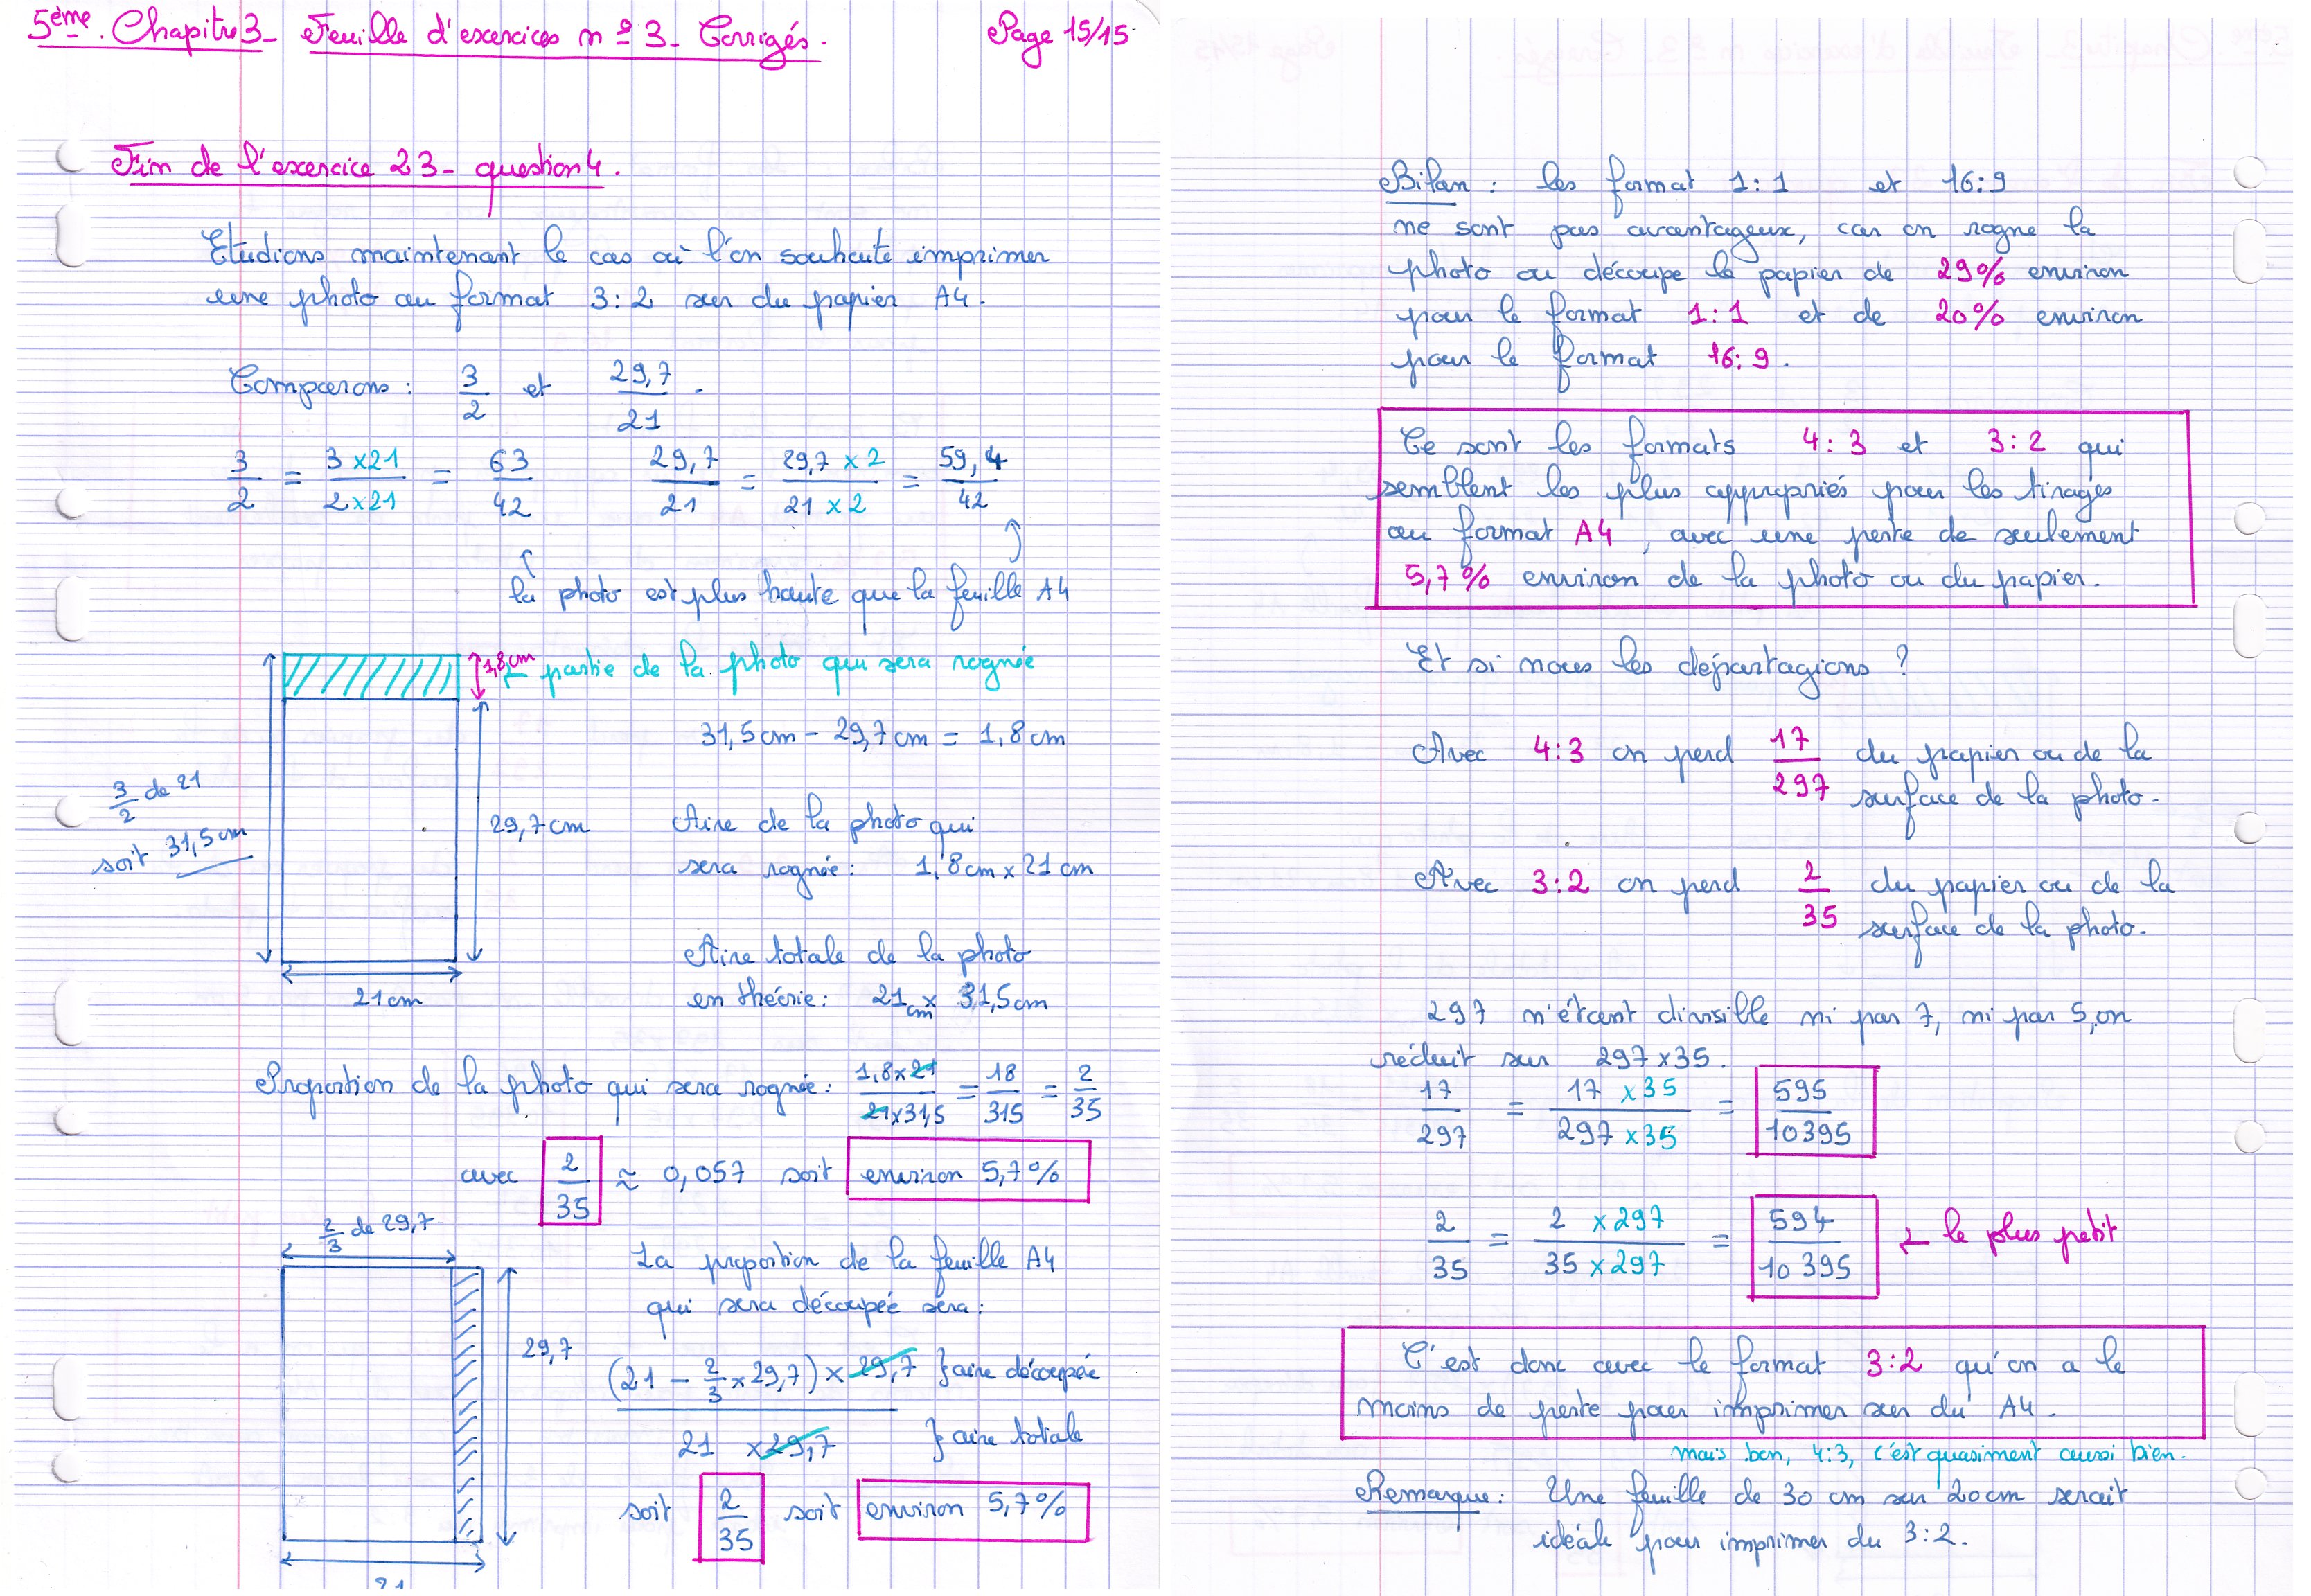 5ème. Chapitre 3 - Feuille d'exercices n°3 - Corrigés. Page 15/15
Fin de l'exercice 23 - question 4.
Etudions maintenant le cas où l'on souhaite imprimer
une photo au format 3:2 sur du papier A4.
Comparons : 3/2 et 29,7/21.
3/2 = 3 x21/2 x21 = 63/42 29,7/21 = 29,7 x 2/21 x 2 = 59,4/42
la photo est plus haute que la feuille A4
1,8cm ← partie de la photo qui sera rognée
31,5cm - 29,7cm = 1,8cm
3/2 de 21
soit 31,5cm
29,7cm
Aire de la photo qui
sera rognée : 1,8cm x 21cm
Aire totale de la photo
en théorie : 21cm x 31,5cm
21cm
Proportion de la photo qui sera rognée : 1,8x21/21x31,5 = 18/315 = 2/35
avec 2/35 ≈ 0,057 soit environ 5,7%
2/3 de 29,7
La proportion de la feuille A4
qui sera découpée sera :
29,7
(21 - 2/3 x 29,7) x 29,7 } aire découpée
21 x 29,7 } aire totale
soit 2/35 soit environ 5,7%
21
Bilan : les format 1:1 et 16:9
ne sont pas avantageux, car on rogne la
photo ou découpe le papier de 29% environ
pour le format 1:1 et de 20% environ
pour le format 16:9.
Ce sont les formats 4:3 et 3:2 qui
semblent les plus appropriés pour les tirages
au format A4, avec une perte de seulement
5,7% environ de la photo ou du papier.
Et si nous les départagions ?
Avec 4:3 on perd 17/297 du papier ou de la
surface de la photo.
Avec 3:2 on perd 2/35 du papier ou de la
surface de la photo.
297 n'étant divisible ni par 7, ni par 5, on
réduit sur 297x35.
17/297 = 17 x35/297 x35 = 595/10395
2/35 = 2 x297/35 x297 = 594/10 395 ← le plus petit
C'est donc avec le format 3:2 qu'on a le
moins de perte pour imprimer sur du A4.
mais bon, 4:3, c'est quasiment aussi bien.
Remarque : Une feuille de 30 cm sur 20cm serait
idéale pour imprimer du 3:2.